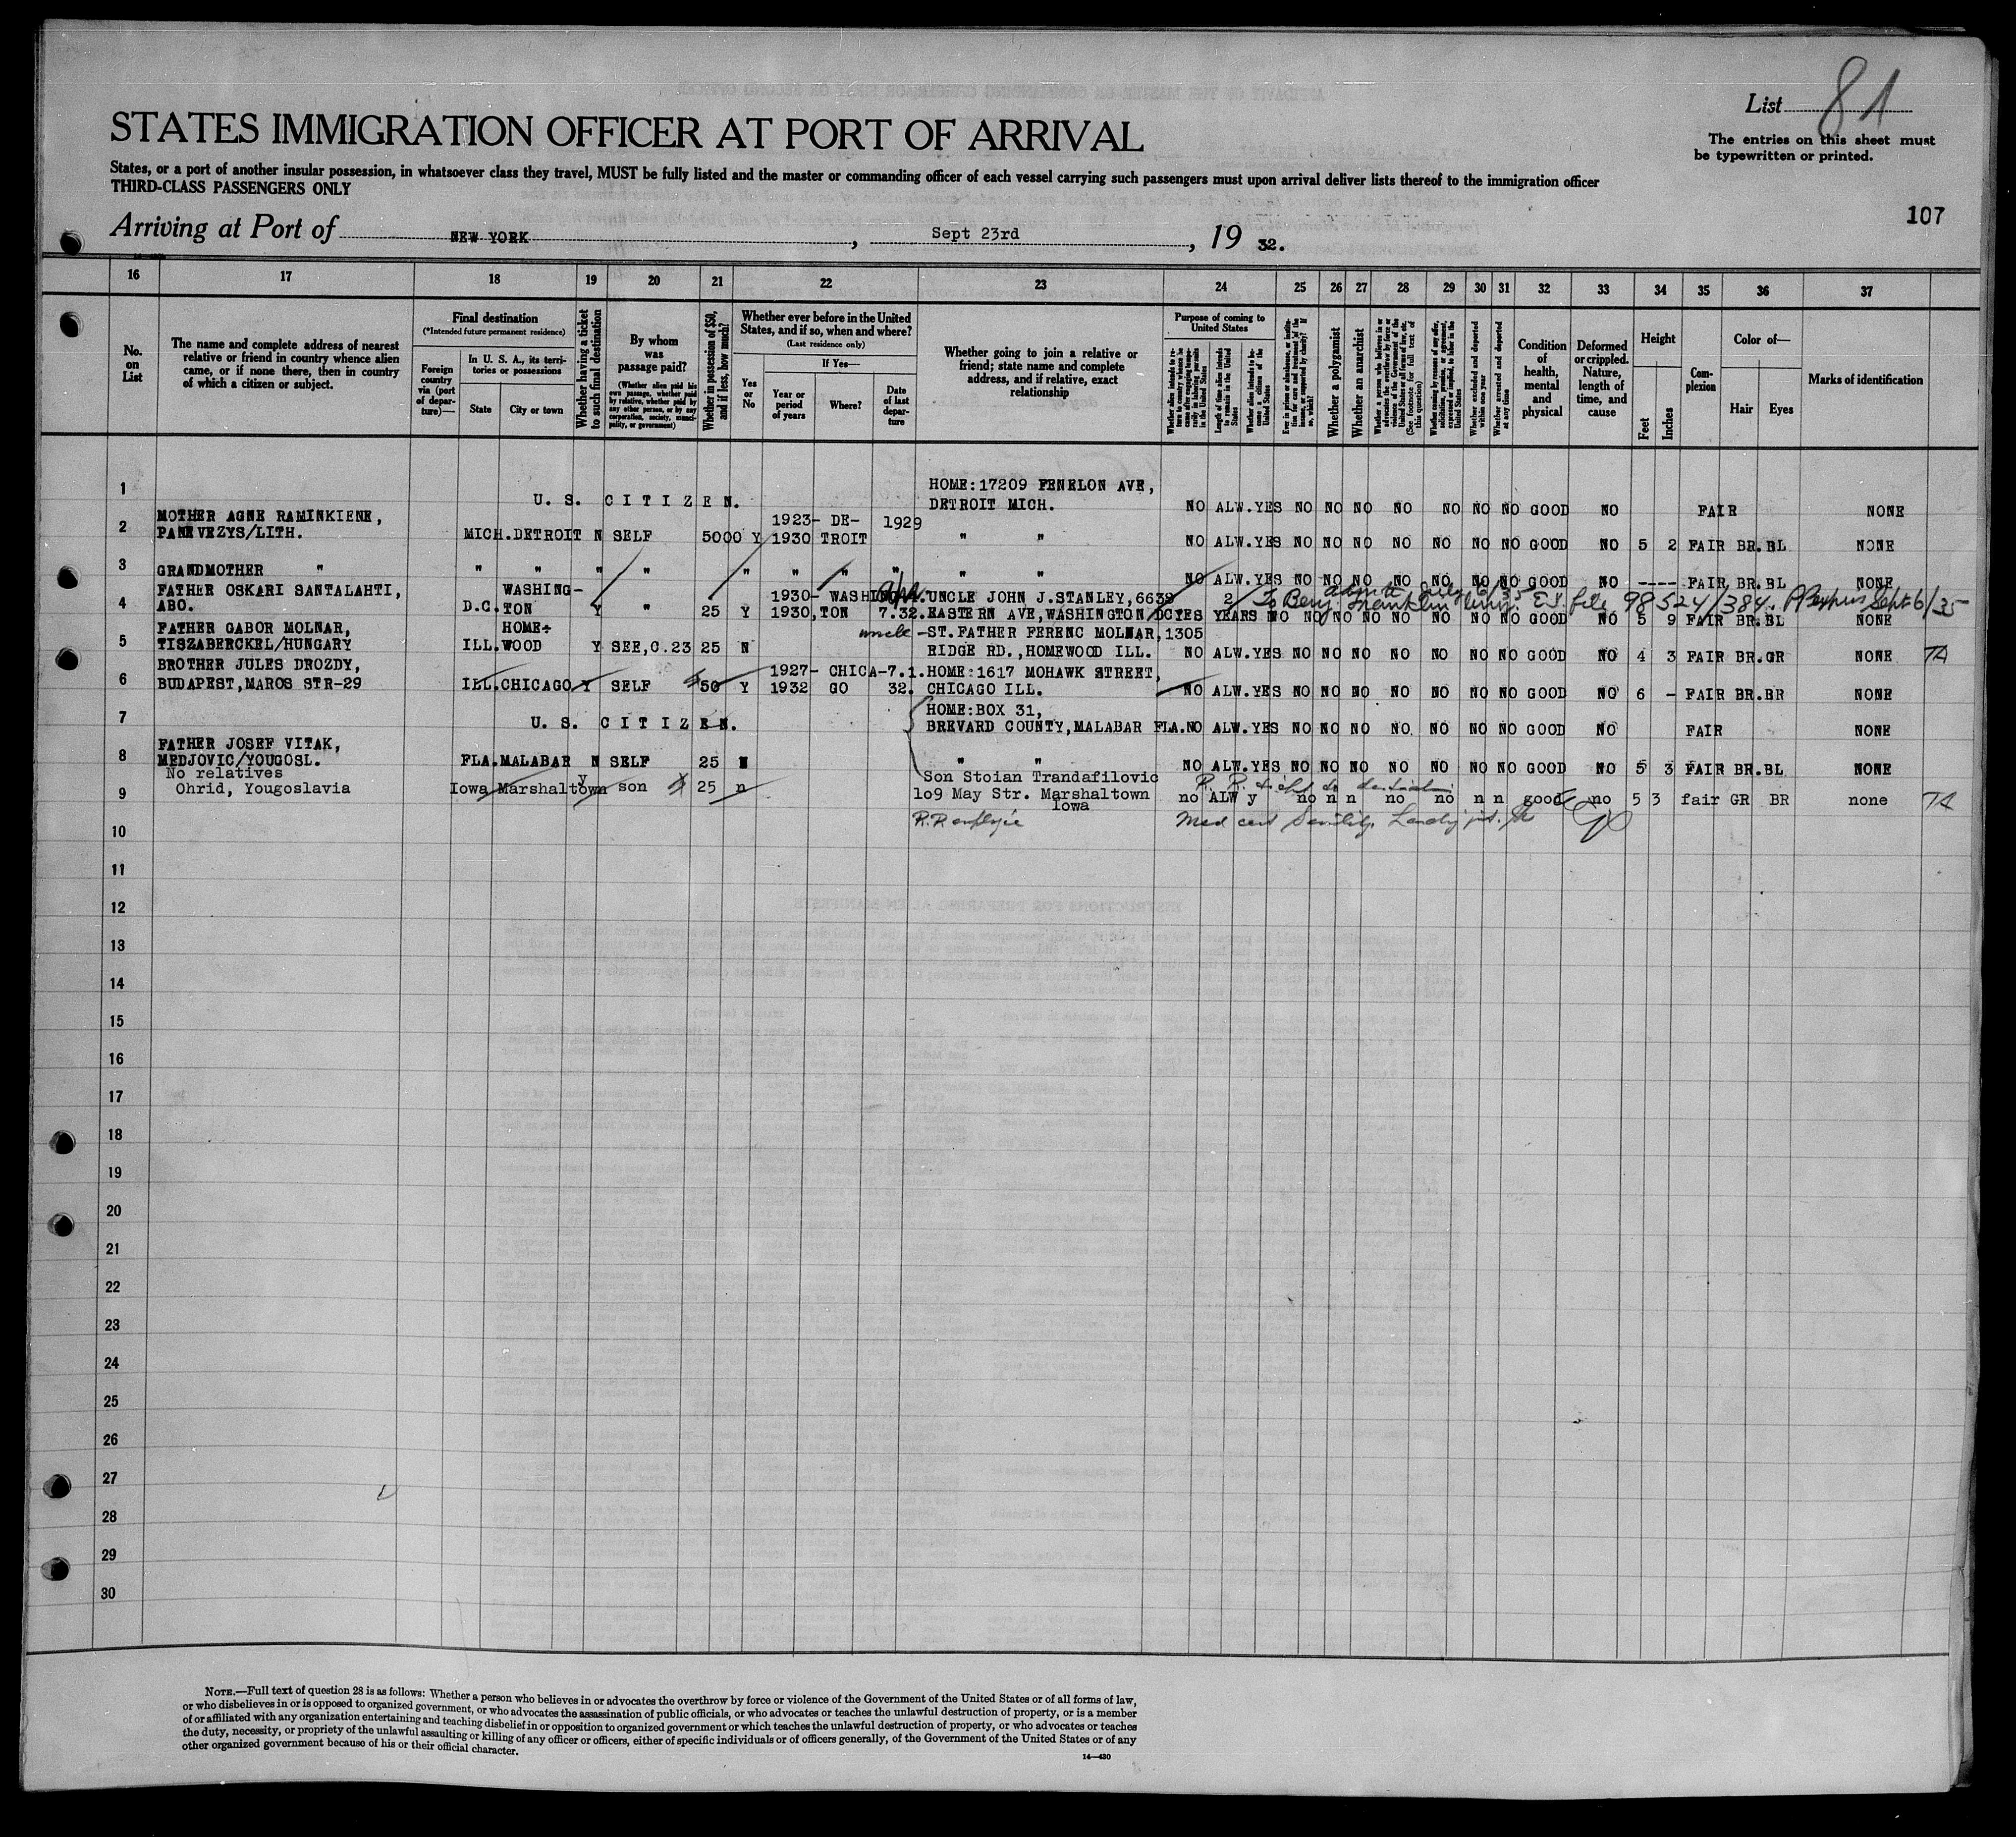 81
List
The entries on this sheet must
be typewritten or printed.
STATES IMMIGRATION OFFICER AT PORT OF ARRIVAL
States, or a port of another insular possession, in whatsoever class they travel, MUST be fully listed and the master or commanding officer of each vessel carrying such passengers must upon arrival deliver lists thereof to the immigration officer
THIRD-CLASS PASSENGERS ONLY
107
Arriving at Port of NEW YORK, Sept 23rd, 19 32.
16 17 18 19 20 21 22 23 24 25 26 27 28 29 30 31 32 33 34 35 36 37
No. on List
The name and complete address of nearest relative or friend in country whence alien came, or if none there, then in country of which a citizen or subject.
Final destination
(*Intended future permanent residence)
Foreign country via (port of departure)—
In U. S. A., its territories or possessions
State
City or town
Whether having a ticket to such final destination
By whom was passage paid?
(Whether alien paid his own passage, whether paid by relative, whether paid by any other person, or by any corporation, society, municipality, or government)
Whether in possession of $50, and if less, how much?
Whether ever before in the United States, and if so, when and where?
(Last residence only)
Yes or No
If Yes—
Year or period of years
Where?
Date of last departure
Whether going to join a relative or friend; state name and complete address, and if relative, exact relationship
Purpose of coming to United States
Length of time alien intends to remain in the United States
Whether alien intends to become a citizen of the United States
Whether a polygamist
Whether an anarchist
Whether arrested and deported at any time
Condition of health, mental and physical
Deformed or crippled. Nature, length of time, and cause
Height
Feet
Inches
Complexion
Color of—
Hair
Eyes
Marks of identification
HOME:17209 FENELON AVE,
1 U. S. CITIZEN. DETROIT MICH. NO ALW.YES NO NO NO NO NO NO NO GOOD NO FAIR NONE
MOTHER AGNE RAMINKIENE, 1923- DE- 1929
2 PANEVEZYS/LITH. MICH.DETROIT N SELF 5000 Y 1930 TROIT " " NO ALW.YES NO NO NO NO NO NO NO GOOD NO 5 2 FAIR BR.BL NONE
3 GRANDMOTHER " " " " " " " " " " " " NO ALW.YES NO NO NO NO NO NO NO GOOD NO ---- FAIR BR.BL NONE
FATHER OSKARI SANTALAHTI, WASHING- 1930- WASHING UNCLE JOHN J.STANLEY,6638 2
4 ABO. D.C.TON Y " 25 Y 1930,TON 7.32. EASTERN AVE,WASHINGTON/DC YES YEARS NO NO NO NO NO NO NO NO GOOD NO 5 9 FAIR BR.BL NONE
To Benj. Franklin Univ. E.S. file 98524/384. Sept 6/35
FATHER GABOR MOLNAR, HOME- uncle -ST.FATHER FERENC MOLNAR,1305
5 TISZABERCKEL/HUNGARY ILL.WOOD Y SEE,C.23 25 N RIDGE RD.,HOMEWOOD ILL. NO ALW.YES NO NO NO NO NO NO NO GOOD NO 4 3 FAIR BR.GR NONE
BROTHER JULES DROZDY, 1927- CHICA-7.1. HOME:1617 MOHAWK STREET,
6 BUDAPEST,MAROS STR-29 ILL.CHICAGO Y SELF 50 Y 1932 GO 32. CHICAGO ILL. NO ALW.YES NO NO NO NO NO NO NO GOOD NO 6 - FAIR BR.BR NONE
HOME:BOX 31,
7 U. S. CITIZEN. BREVARD COUNTY,MALABAR FLA. NO ALW.YES NO NO NO NO NO NO NO GOOD NO FAIR NONE
FATHER JOSEF VITAK,
8 MEDJOVIC/YOUGOSL. FLA.MALABAR N SELF 25 N " " NO ALW.YES NO NO NO NO NO NO NO GOOD NO 5 3 FAIR BR.BL NONE
No relatives y Son Stoian Trandafilovic
9 Ohrid, Yougoslavia Iowa Marshaltown son 25 n 109 May Str. Marshaltown no ALW y no n n no no n n good no 5 3 fair GR BR none
Iowa
10 R.R employée Med cert Senility.
11
12
13
14
15
16
17
18
19
20
21
22
23
24
25
26
27
28
29
30
NOTE.—Full text of question 28 is as follows: Whether a person who believes in or advocates the overthrow by force or violence of the Government of the United States or of all forms of law,
or who disbelieves in or is opposed to organized government, or who advocates the assassination of public officials, or who advocates or teaches the unlawful destruction of property, or is a member
of or affiliated with any organization entertaining and teaching disbelief in or opposition to organized government or which teaches the unlawful destruction of property, or who advocates or teaches
the duty, necessity, or propriety of the unlawful assaulting or killing of any officer or officers, either of specific individuals or of officers generally, of the Government of the United States or of any
other organized government because of his or their official character.
14—430